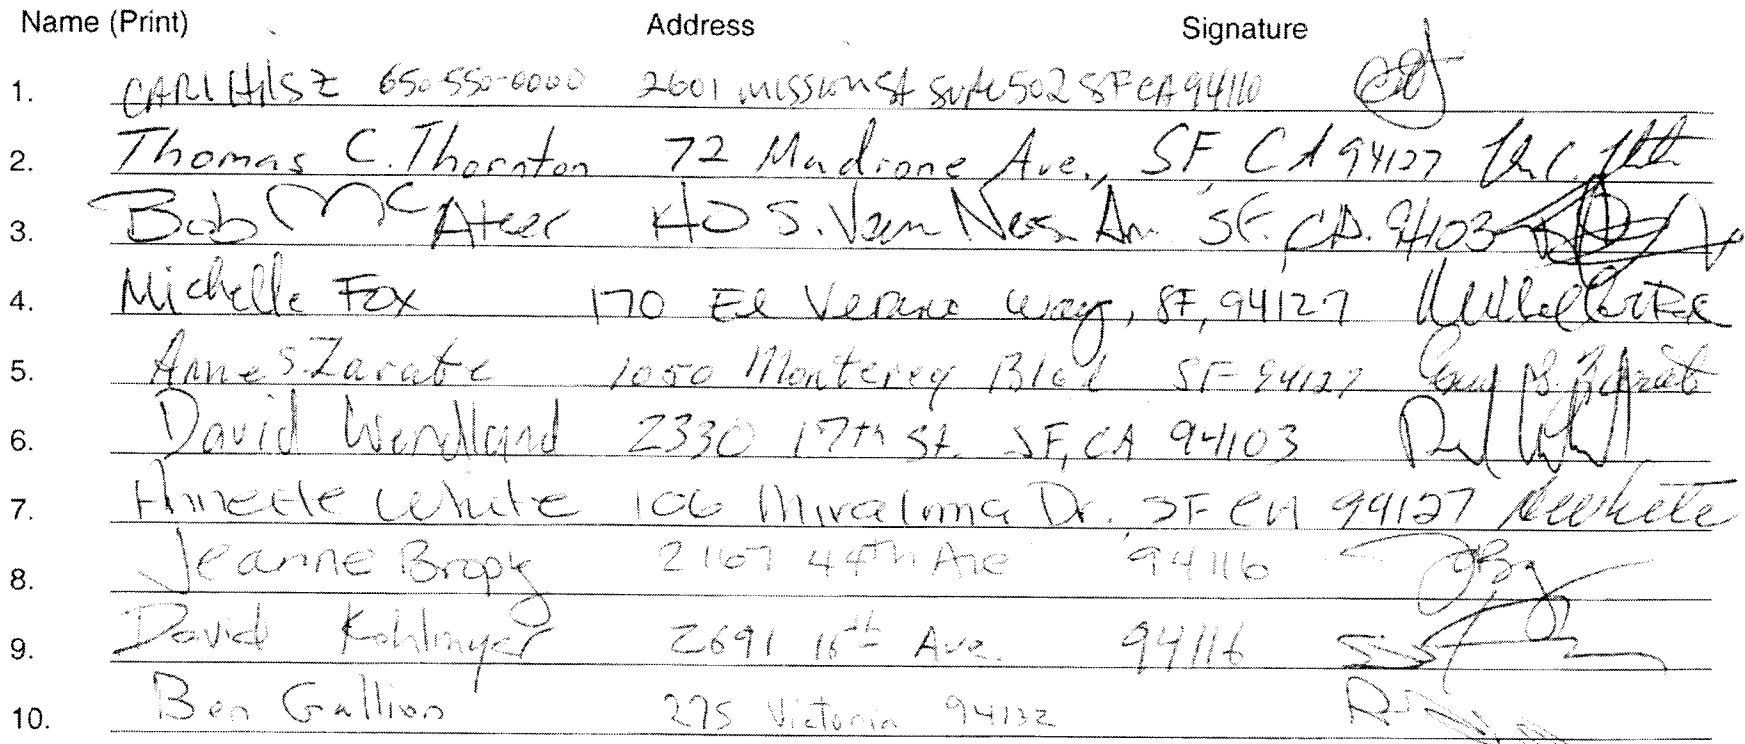 Name (Print) Address Signature
1. CARL HILSZ 650-550-0000 2601 mission St Suite 502 SF CA 94110
2. Thomas C. Thornton 72 Madrone Ave., SF, CA 94127
3. Bob McAteer 40 S. Van Ness Av. SF. CA. 94103
4. Michelle Fox 170 El Verano Way, SF, 94127
5. Anne S. Zarate 1050 Monterey Blvd SF 94127
6. David Wendland 2330 17th St. SF, CA 94103
7. Annette White 106 Miraloma Dr. SF CA 94127
8. Jeanne Bropy 2167 44th Ave 94116
9. David Kohlmyer 2691 16th Ave. 94116
10. Ben Gallion 275 Victoria 94132